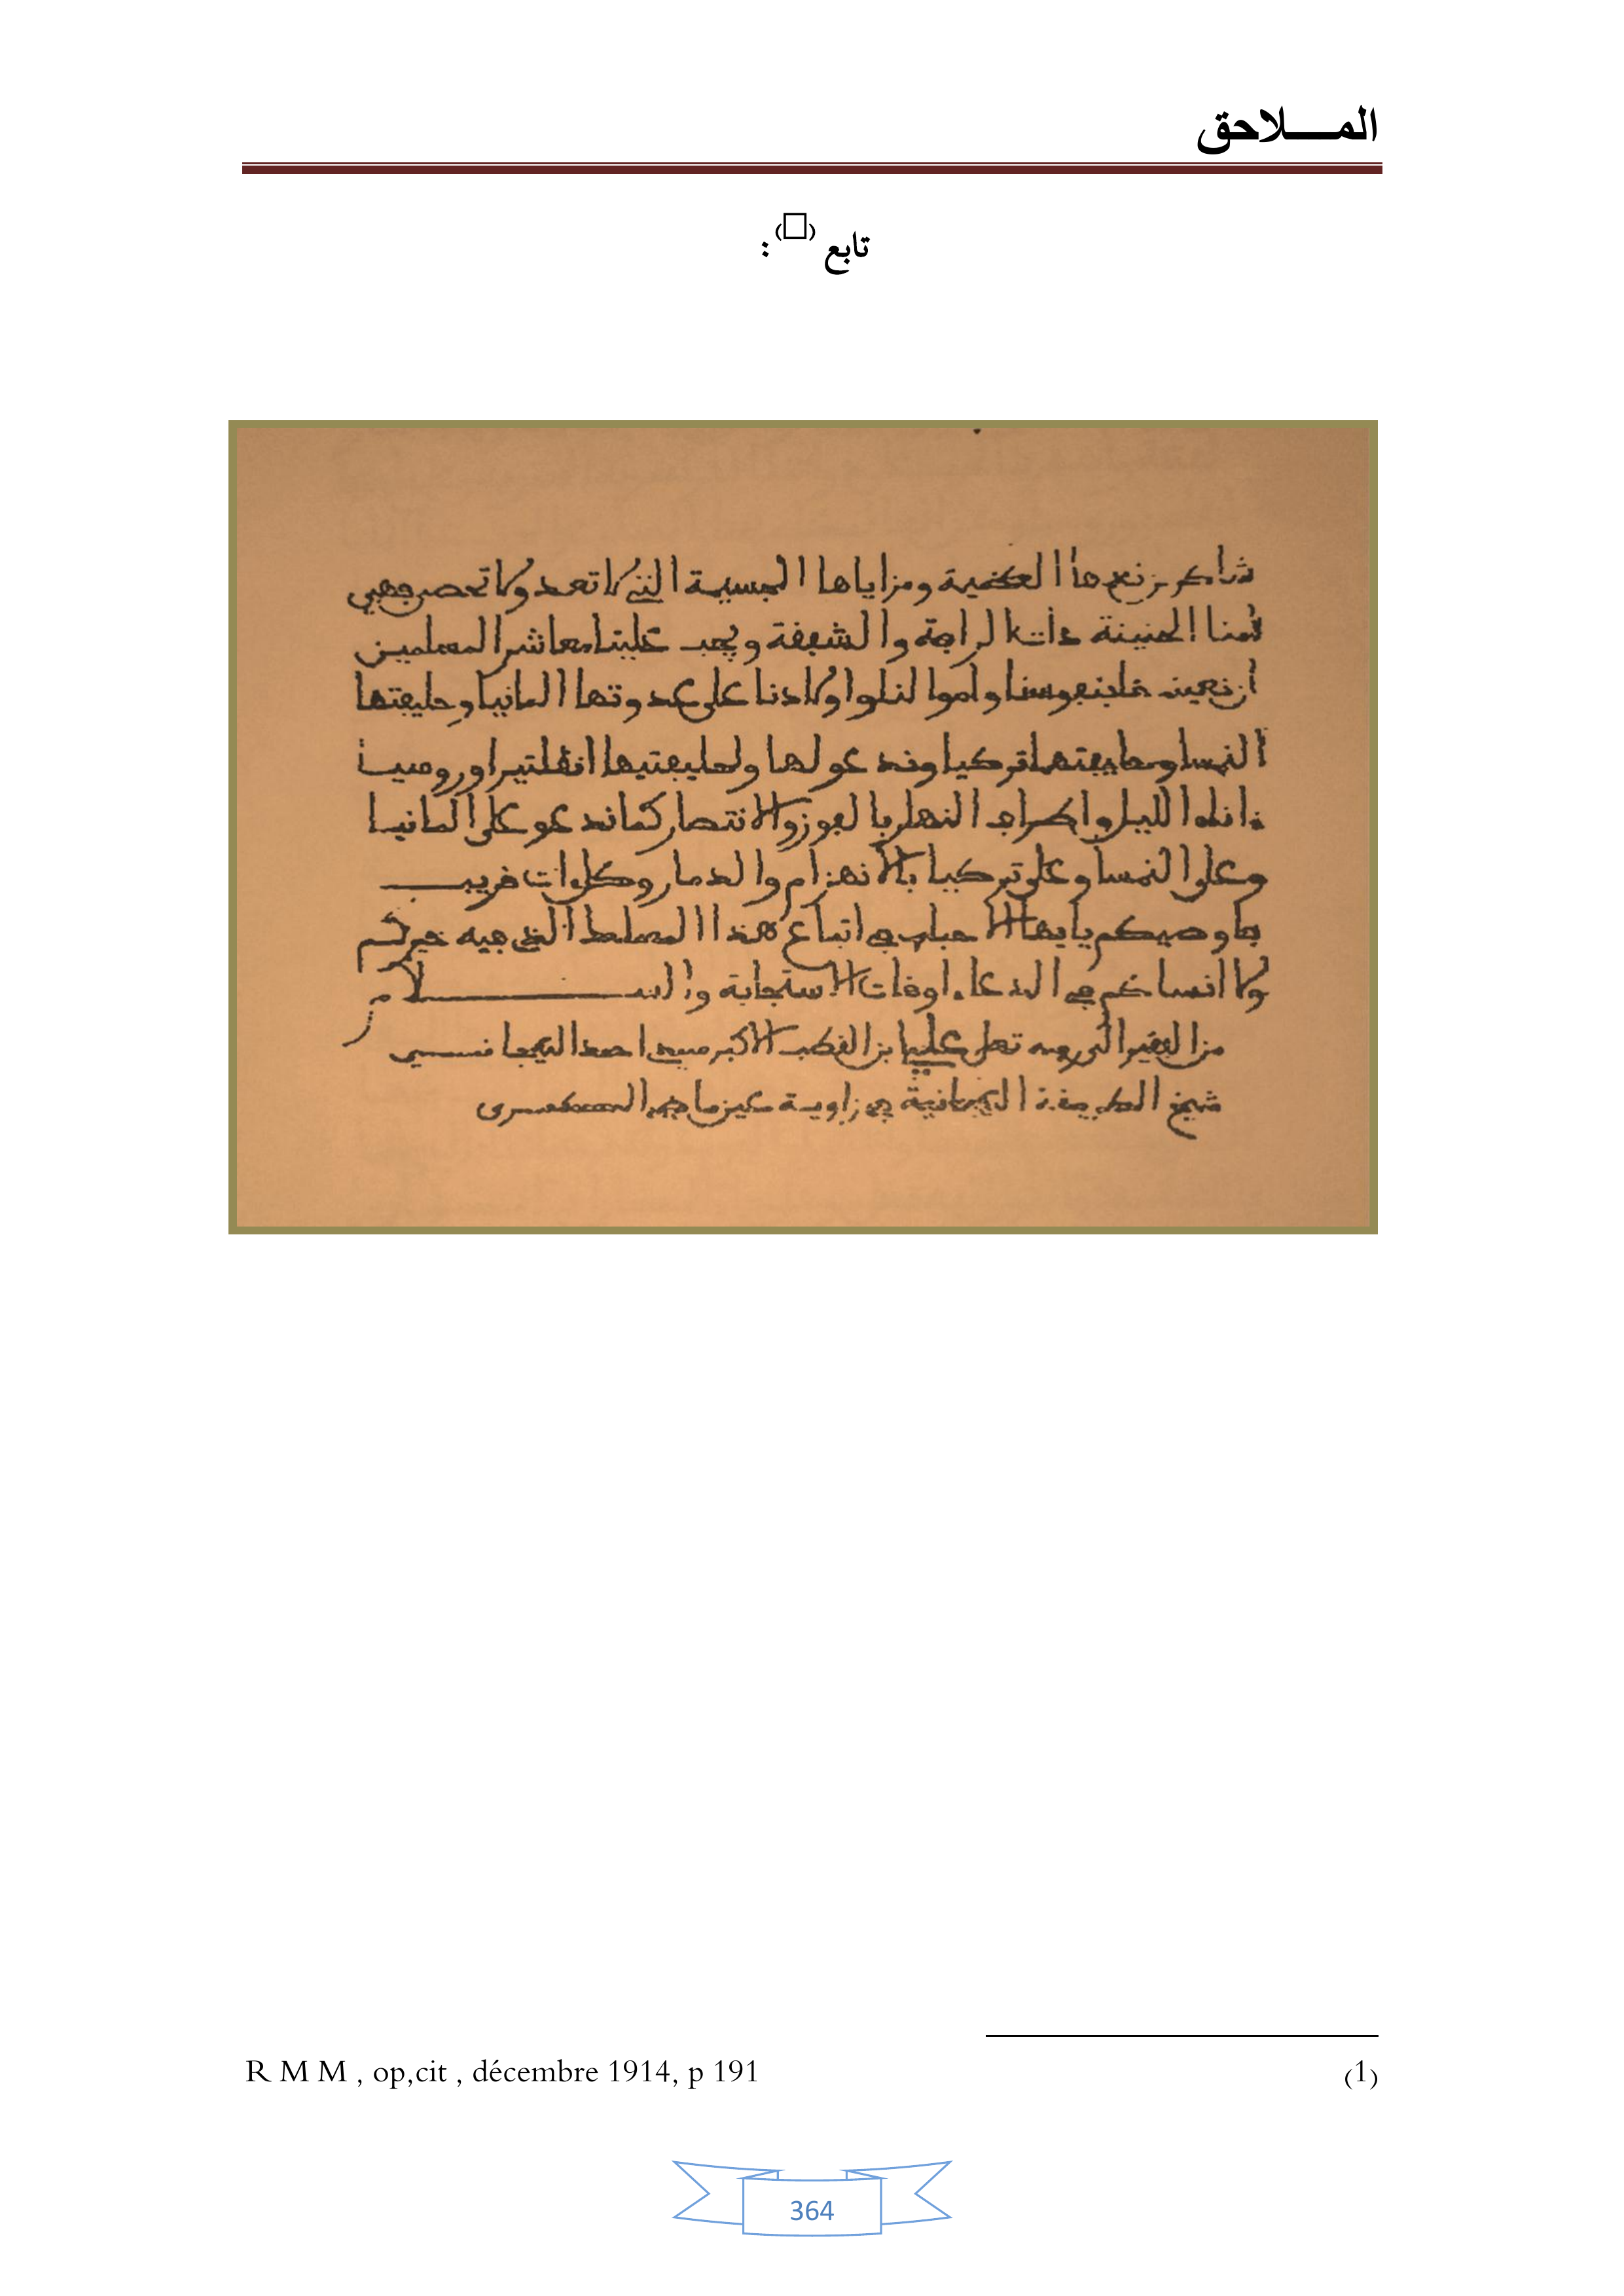 المـــلاحق
تابع (□) :
شاكرين نعمها العظيمة ومزاياها الجسيمة التي لا تعد ولا تحصر فهي
أمنا الحنينة ذات الرأفة والشفقة ويجب علينا معاشر المسلمين
أن نعين بنفوسنا وأموالنا وأولادنا على عدوتها ألمانيا وحليفتها
النمسا وحليفتهما تركيا وندعو لها ولحليفتيها انقلتيرا وروسيا
ءاناء الليل وأطراف النهار بالفوز والانتصار كما ندعو على ألمانيا
وعلى النمسا وعلى تركيا بالانهزام والدمار وكل ءات قريب
فأوصيكم يا أيها الأحباب في اتباع هذا المسلك الذي فيه خيركم
ولا أنساكم في الدعاء أوقات الاستجابة والســـلام
من الفقير إلى ربه تعلى علي بن القطب الأكبر سيدي احمد التيجانــي
شيخ الطريقة التيجانية في زاوية عين ماضي
R M M , op,cit , décembre 1914, p 191 (1)
364